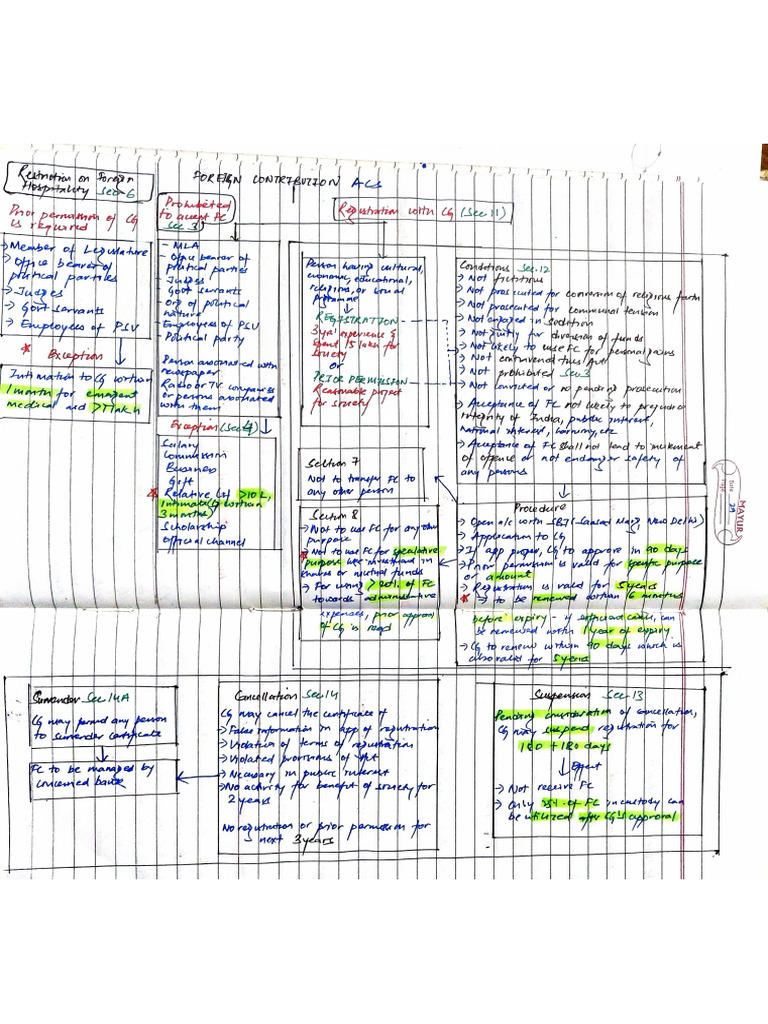 FOREIGN CONTRIBUTION
Restriction on Foreign
Hospitality Sec 6
Prior permission of CG
is required
→ Member of Legislature
→ Office bearer of
political parties
→ Judges
→ Govt servants
→ Employees of PSU
* Exception
Intimation to CG within
1 month for emergent
medical aid >1 lakh
Prohibited
to accept FC
Sec. 3
- MLA
- Office bearer of
political parties
- Judges
Govt servants
- Org of political
nature
- Employees of PSU
- Political party
Person associated with
newspaper
Radio or TV companies
or persons associated
with them
Exception (Sec 4)
Salary
Commission
Business
Gift
* Relative (if >10 L,
intimate CG within
3 months)
Scholarship
Official channel
Registration with CG (Sec. 11)
Person having cultural,
economic, educational,
religious, or social
programme
→ REGISTRATION
3 yrs' experience &
spent 15 lakh for
society
OR
→ PRIOR PERMISSION
Reasonable project
for society
Section 7
Not to transfer FC to
any other person
Section 8
→ Not to use FC for any other
purpose
* Not to use FC for speculative
purpose like investment in
shares or mutual funds
→ For using >20% of FC
towards administrative
expenses, prior approval
of CG is reqd
Conditions Sec. 12
→ Not fictitious
→ Not prosecuted for conversion of religious faith
→ Not prosecuted for communal tension
→ Not engaged in sedition
→ Not guilty for diversion of funds
→ Not likely to use FC for personal gains
→ Not contravened this Act
→ Not prohibited Sec 3
→ Not convicted or no pending prosecution
→ Acceptance of FC not likely to prejudice
integrity of India, public interest,
national interest, harmony, etc.
→ Acceptance of FC shall not lead to incitement
of offence or not endanger safety of
any persons
Procedure
→ Open a/c with SBI (Sansad Marg, New Delhi)
→ Application to CG
→ If app proper, CG to approve in 90 days
→ Prior permission is valid for specific purpose
or amount
→ Registration is valid for 5 years
* → to be renewed within 6 months
before expiry - if sufficient cause, can
be renewed within 1 year of expiry
→ CG to renew within 90 days which is
also valid for 5 years
MAYUR
Date
Page
Surrender Sec 14A
CG may permit any person
to surrender certificate
FC to be managed by
concerned bank
Cancellation Sec 14
CG may cancel the certificate if
→ False information in app of registration
→ Violation of terms of registration
→ Violated provisions of Act
→ Necessary in public interest
→ No activity for benefit of society for
2 years
No registration or prior permission for
next 3 years
Suspension Sec 13
Pending consideration of cancellation,
CG may suspend registration for
180 + 180 days
Effect
→ Not receive FC
→ Only 25% of FC in custody can
be utilized after CG's approval